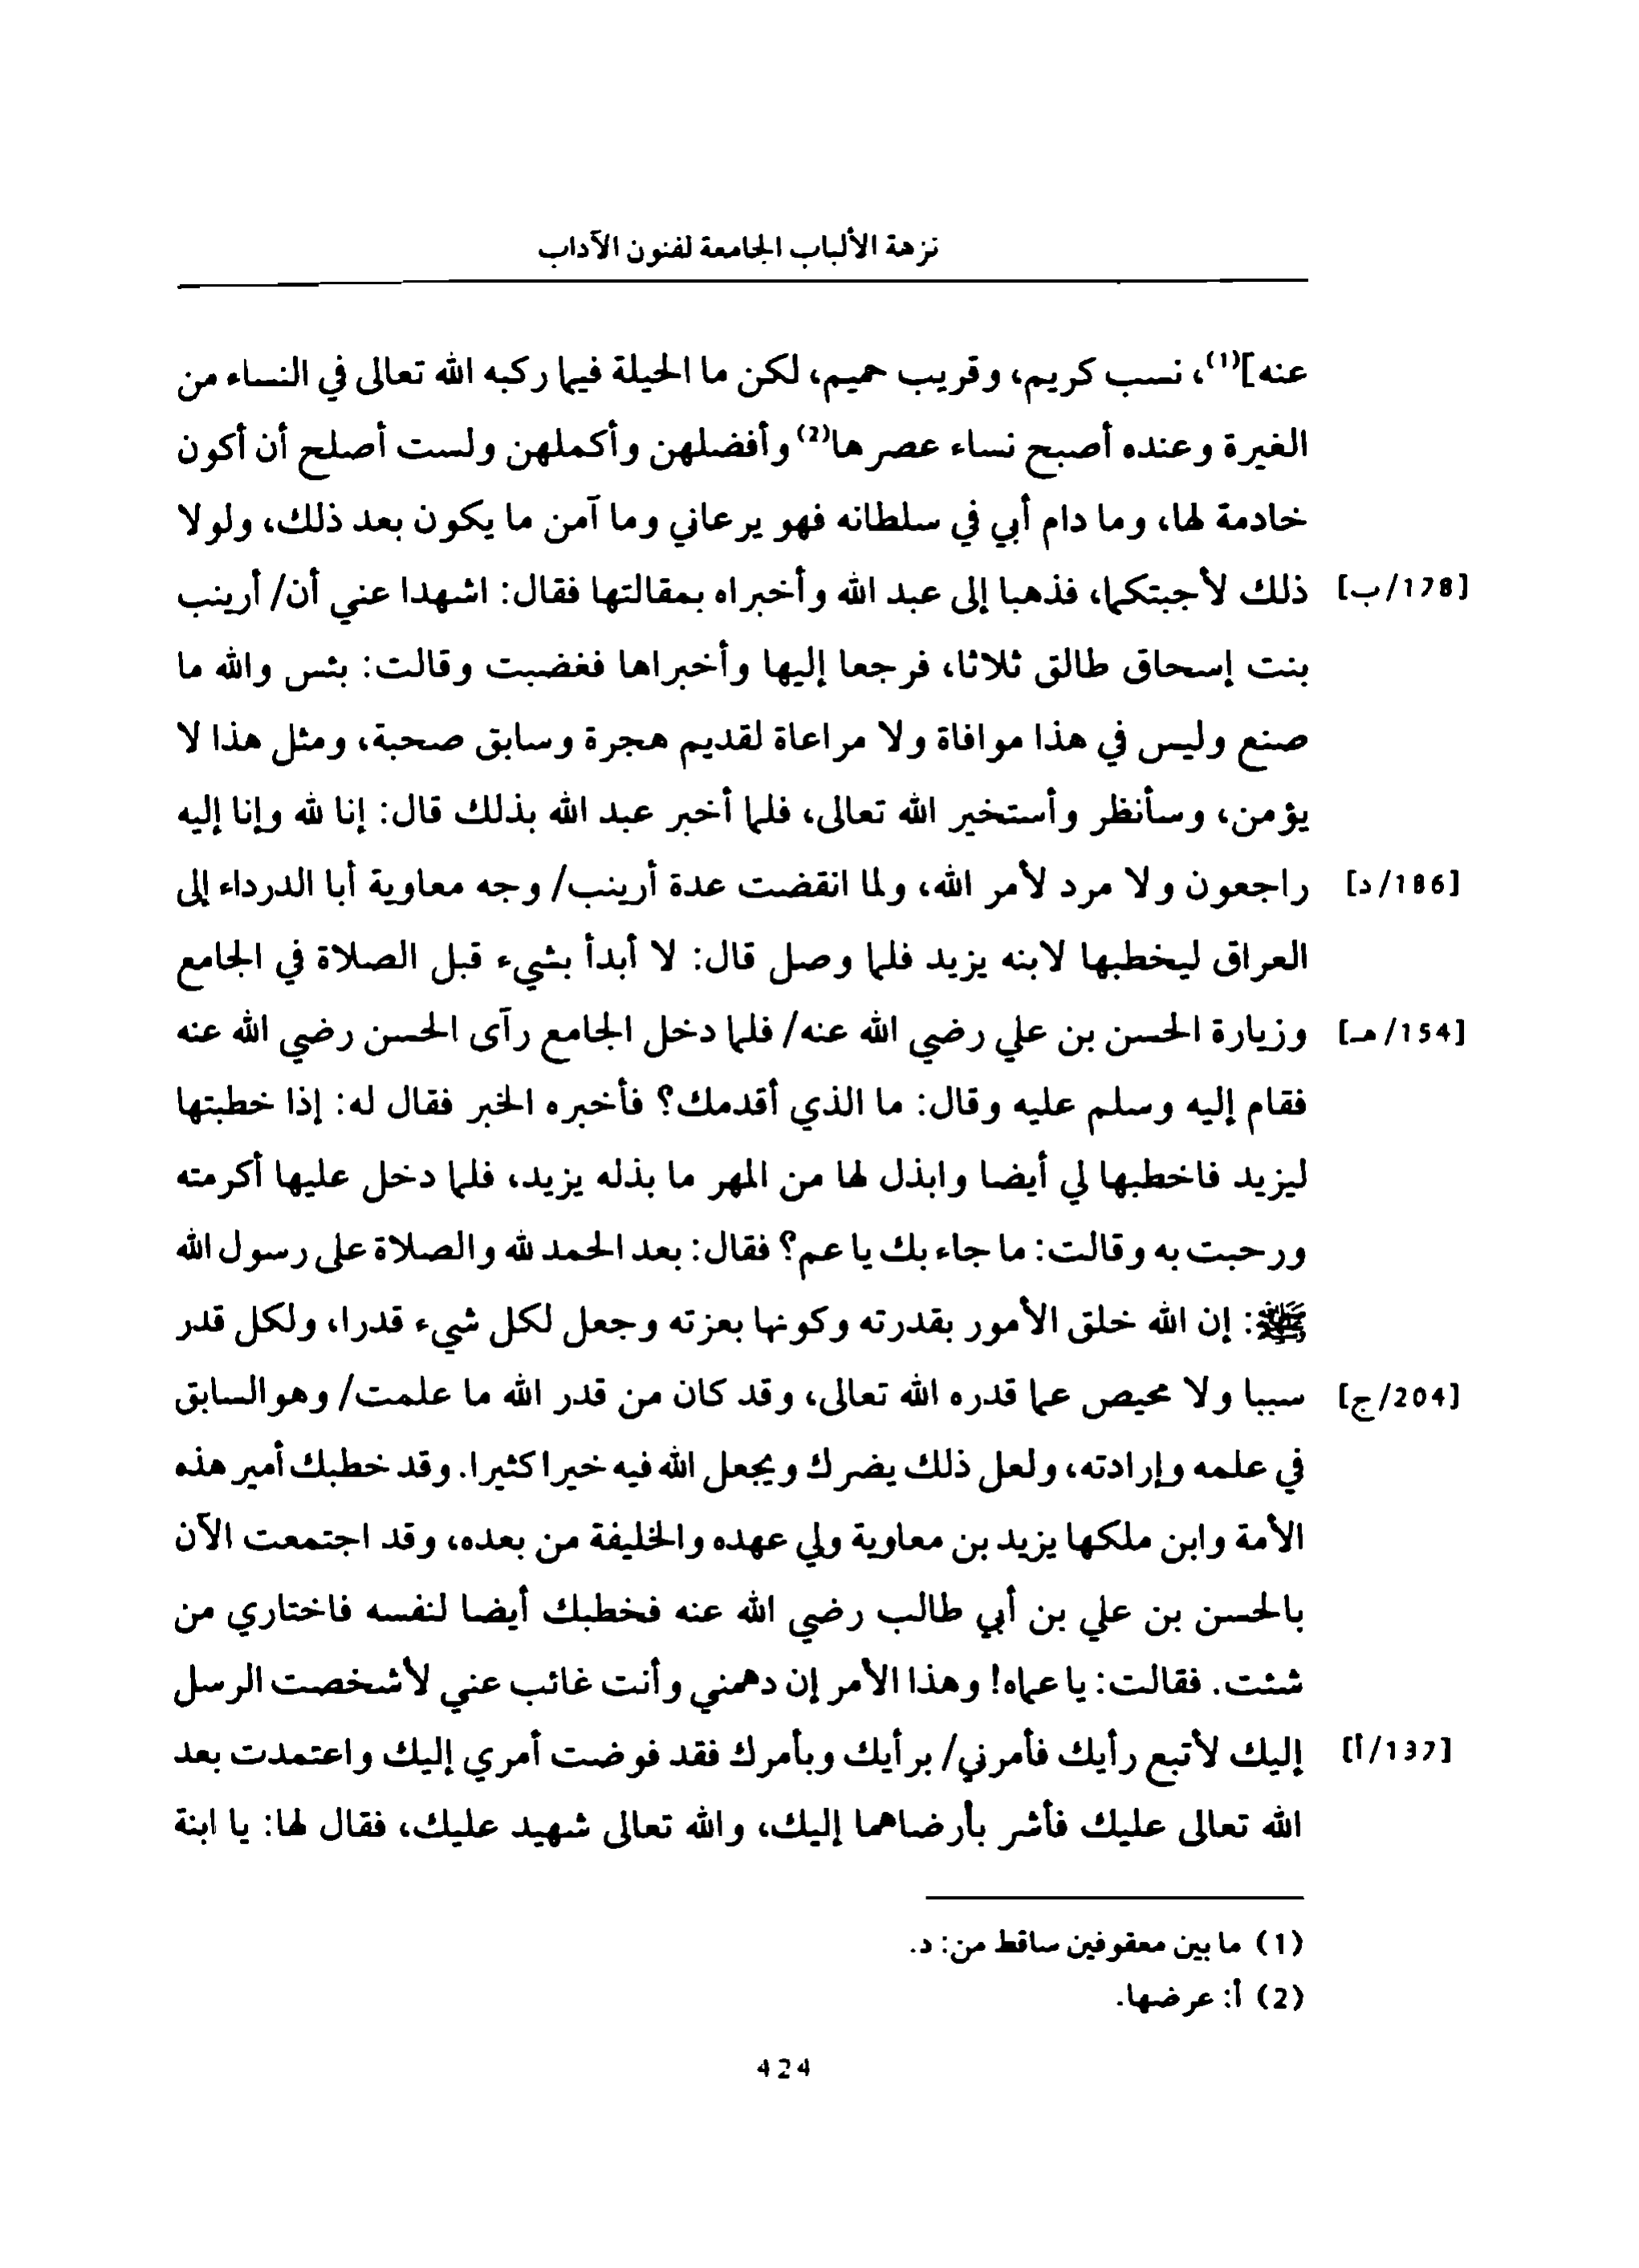 نزهة الألباب الجامعة لفنون الآداب
عنه](1)، نسب كريم، وقريب حميم، لكن ما الحيلة فيما ركبه الله تعالى في النساء من
الغيرة وعنده أصبح نساء عصرها(2) وأفضلهن وأكملهن ولست أصلح أن أكون
خادمة لها، وما دام أبي في سلطانه فهو يرعاني وما آمن ما يكون بعد ذلك، ولولا
[178/ب] ذلك لأجبتكما، فذهبا إلى عبد الله وأخبراه بمقالتها فقال: اشهدا عني أن/ أرينب
بنت إسحاق طالق ثلاثا، فرجعا إليها وأخبراها فغضبت وقالت: بئس والله ما
صنع وليس في هذا موافاة ولا مراعاة لقديم هجرة وسابق صحبة، ومثل هذا لا
يؤمن، وسأنظر وأستخير الله تعالى، فلما أخبر عبد الله بذلك قال: إنا لله وإنا إليه
[186/د] راجعون ولا مرد لأمر الله، ولما انقضت عدة أرينب/ وجه معاوية أبا الدرداء إلى
العراق ليخطبها لابنه يزيد فلما وصل قال: لا أبدأ بشيء قبل الصلاة في الجامع
[154/هـ] وزيارة الحسن بن علي رضي الله عنه/ فلما دخل الجامع رآى الحسن رضي الله عنه
فقام إليه وسلم عليه وقال: ما الذي أقدمك؟ فأخبره الخبر فقال له: إذا خطبتها
ليزيد فاخطبها لي أيضا وابذل لها من المهر ما بذله يزيد، فلما دخل عليها أكرمته
ورحبت به وقالت: ما جاء بك يا عم؟ فقال: بعد الحمد لله والصلاة على رسول الله
ﷺ: إن الله خلق الأمور بقدرته وكونها بعزته وجعل لكل شيء قدرا، ولكل قدر
[204/ج] سببا ولا محيص عما قدره الله تعالى، وقد كان من قدر الله ما علمت/ وهوالسابق
في علمه وإرادته، ولعل ذلك يضرك ويجعل الله فيه خيرا كثيرا. وقد خطبك أمير هذه
الأمة وابن ملكها يزيد بن معاوية ولي عهده والخليفة من بعده، وقد اجتمعت الآن
بالحسن بن علي بن أبي طالب رضي الله عنه فخطبك أيضا لنفسه فاختاري من
شئت. فقالت: يا عماه! وهذا الأمر إن دهمني وأنت غائب عني لأشخصت الرسل
[137/أ] إليك لأتبع رأيك فأمرني/ برأيك وبأمرك فقد فوضت أمري إليك واعتمدت بعد
الله تعالى عليك فأشر بأرضاهما إليك، والله تعالى شهيد عليك، فقال لها: يا ابنة
(1) ما بين معقوفين ساقط من: د.
(2) أ: عرضها.
424